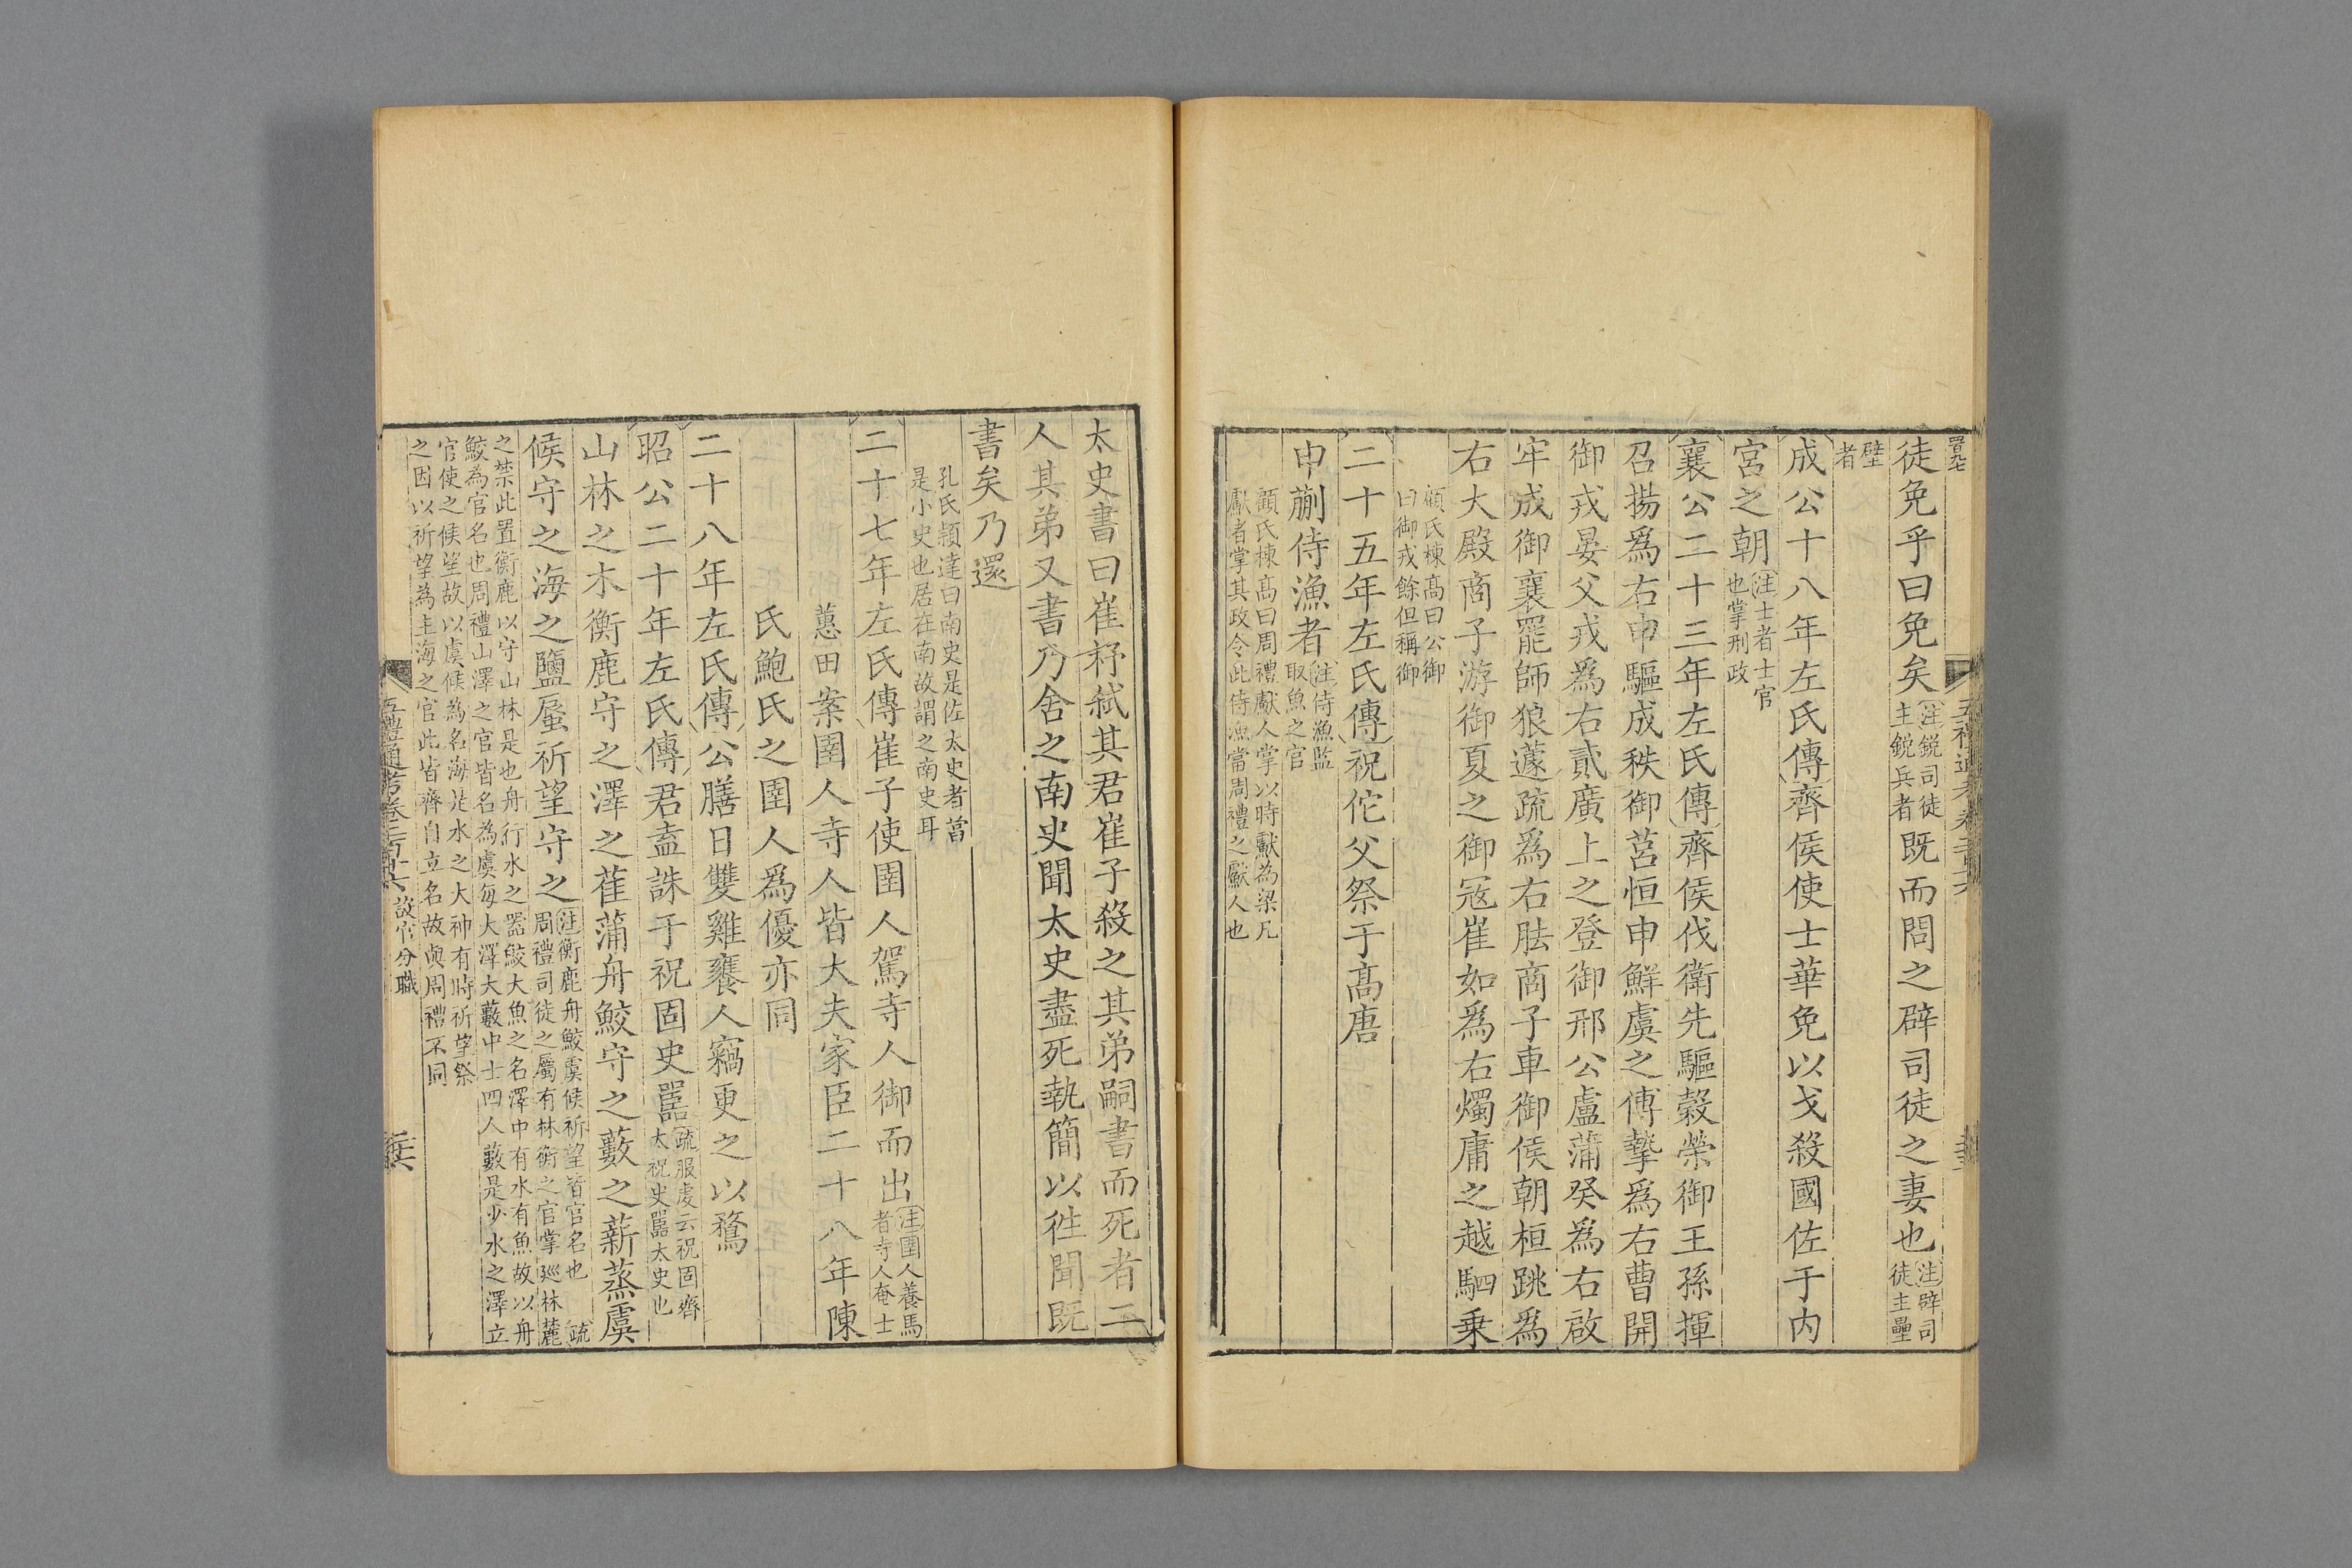 徒免乎曰免矣注銳司徒主銳兵者既而問之辟司徒之妻也注辟司徒主壘
壁者
成公十八年左氏傳齊侯使士華免以戈殺國佐于內
宮之朝注士者士官也掌刑政
襄公二十三年左氏傳齊侯伐衛先驅穀榮御王孫揮
召揚爲右申驅成秩御莒恒申鮮虞之傅摯爲右曹開
御戎晏父戎爲右貳廣上之登御邢公盧蒲癸爲右啟
牢成御襄罷師狼蘧疏爲右胠商子車御侯朝桓跳爲
右大殿商子游御夏之御寇崔如爲右燭庸之越駟乗
顧氏棟高曰公御曰御戎餘但稱御
二十五年左氏傳祝佗父祭于高唐
申蒯侍漁者注侍漁監取魚之官
顧氏棟高曰周禮䱷人掌以時䱷為梁凡䱷者掌其政令此侍漁當周禮之䱷人也
太史書曰崔杼弑其君崔子殺之其弟嗣書而死者二
人其弟又書乃舍之南史聞太史盡死執簡以徃聞既
書矣乃還
孔氏穎達曰南史是佐太史者當是小史也居在南故謂之南史耳
二十七年左氏傳崔子使圉人駕寺人御而出注圉人養馬者寺人奄士
蕙田案圉人寺人皆大夫家臣二十八年陳
氏鮑氏之圉人爲優亦同
二十八年左氏傳公膳日雙雞饔人竊更之以鶩
昭公二十年左氏傳君盍誅于祝固史嚚疏服虔云祝固齊太祝史嚚太史也
山林之木衡鹿守之澤之萑蒲舟鮫守之藪之薪蒸虞
候守之海之鹽蜃祈望守之注衡鹿舟鮫虞候祈望皆官名也　疏周禮司徒之屬有林衡之官掌廵林麓
之禁此置衡鹿以守山林是也舟行水之器鮫大魚之名澤中有水有魚故以舟鮫為官名也周禮山澤之官皆名為虞每大澤大藪中士四人藪是少水之澤立
官使之候望故以虞候為名海是水之大神有時祈望祭之因以祈望為主海之官此皆齊自立名故與周禮不同
五禮通考卷二百十六 設官分職